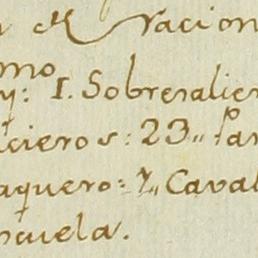 Nacion
mo
y: 1. Sobresalien
cieros: 23,, Par
aquero: 7,, Caval
huela.